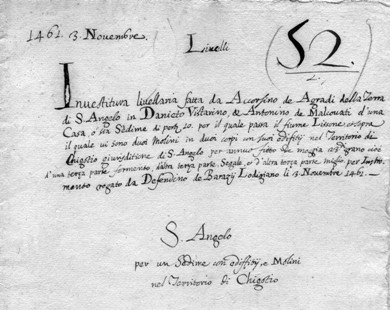 1461. 3. Novembre.
Livelli
52.
Investitura livellaria fatta da Accorsino de Agradi della Terra
di S. Angelo in Danielo Vistarino, & Antonino de Malcovati d'una
Casa, o sia Sedime di pert. 10. per il quale passa il fiume Lisone, et sopra
il quale vi sono duoi Molini in duoi corpi con suoi edifitij nel Territorio di
Chigstio giurisditione di S. Angelo per annuo fitto de moggia grano cioè
d'una terza parte formento, d'altra terza parte Segale, e d'altra terza parte miglio, per Instro-
mento rogato da Defendino de Lodigiano li 3 Novembre 1461.
S. Angelo
per un Sedime con edifitij, e Molini
nel Territorio di Chigstio